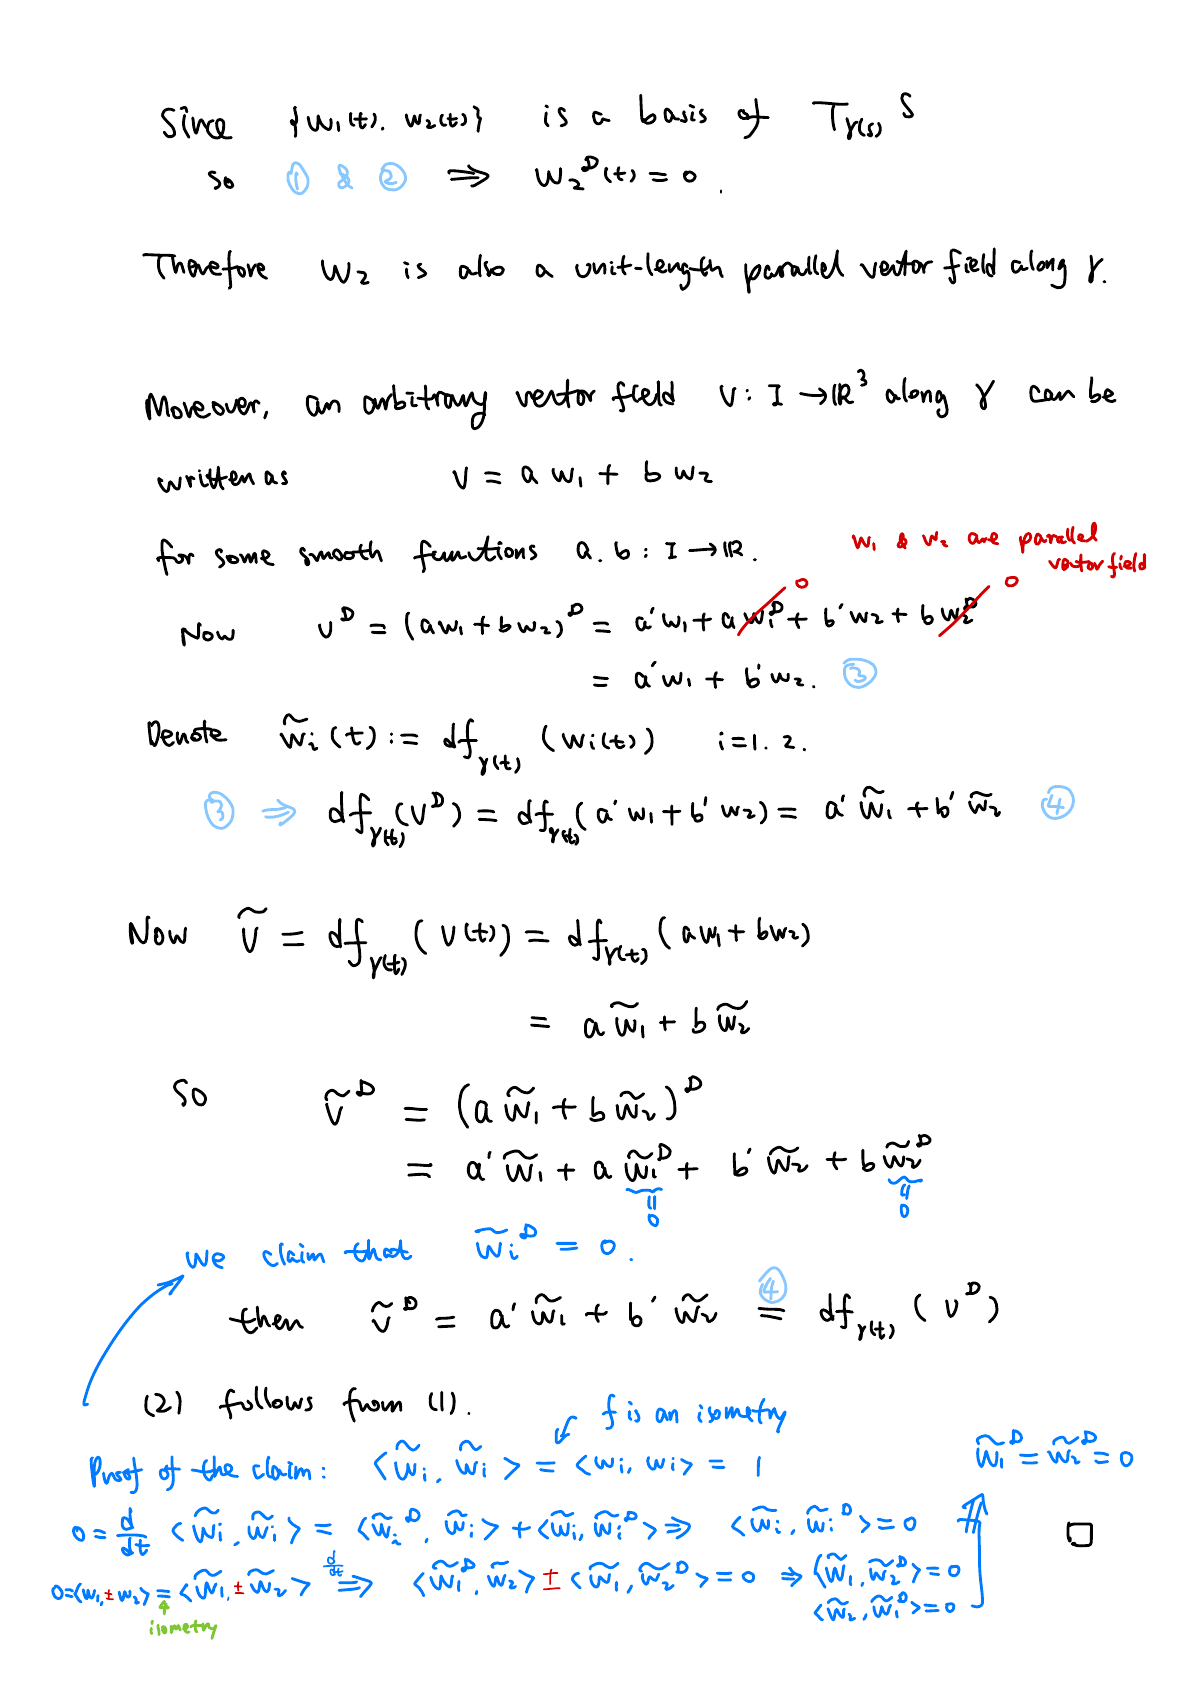 Since {w₁(t). w₂(t)} is a basis of T_γ(s) S
so ① & ② ⇒ w₂ᴰ(t) = 0 .
Therefore w₂ is also a unit-length parallel vector field along γ.
Moreover, an arbitrary vector field v : I → ℝ³ along γ can be
written as v = a w₁ + b w₂
for some smooth functions a. b : I → ℝ.
w₁ & w₂ are parallel
vector field
0 0
Now vᴰ = (aw₁ + bw₂)ᴰ = a′w₁ + a w₁ᴰ + b′w₂ + b w₂ᴰ
= a′w₁ + b′w₂. ③
Denote w̃ᵢ(t) := df_γ(t) (wᵢ(t)) i=1. 2.
③ ⇒ df_γ(t)(vᴰ) = df_γ(t)(a′w₁ + b′w₂) = a′w̃₁ + b′w̃₂ ④
Now ṽ = df_γ(t) (v(t)) = df_γ(t) (aw₁ + bw₂)
= a w̃₁ + b w̃₂
So ṽᴰ = (a w̃₁ + b w̃₂)ᴰ
= a′ w̃₁ + a w̃₁ᴰ + b′ w̃₂ + b w̃₂ᴰ
॥ ॥
0 0
we claim that w̃ᵢᴰ = 0 .
④
then ṽᴰ = a′ w̃₁ + b′ w̃₂ = df_γ(t) (vᴰ)
(2) follows from (1).
f is an isometry
Proof of the claim: <w̃ᵢ, w̃ᵢ> = <wᵢ, wᵢ> = 1
w̃₁ᴰ = w̃₂ᴰ = 0
0 = d/dt <w̃ᵢ, w̃ᵢ> = <w̃ᵢᴰ, w̃ᵢ> + <w̃ᵢ, w̃ᵢᴰ> ⇒ <w̃ᵢ, w̃ᵢᴰ> = 0 □
0 = <w₁, ± w₂> = <w̃₁, ± w̃₂> d/dt ⇒ <w̃₁ᴰ, w̃₂> ± <w̃₁, w̃₂ᴰ> = 0 ⇒ <w̃₁, w̃₂ᴰ> = 0
<w̃₂, w̃₁ᴰ> = 0
isometry